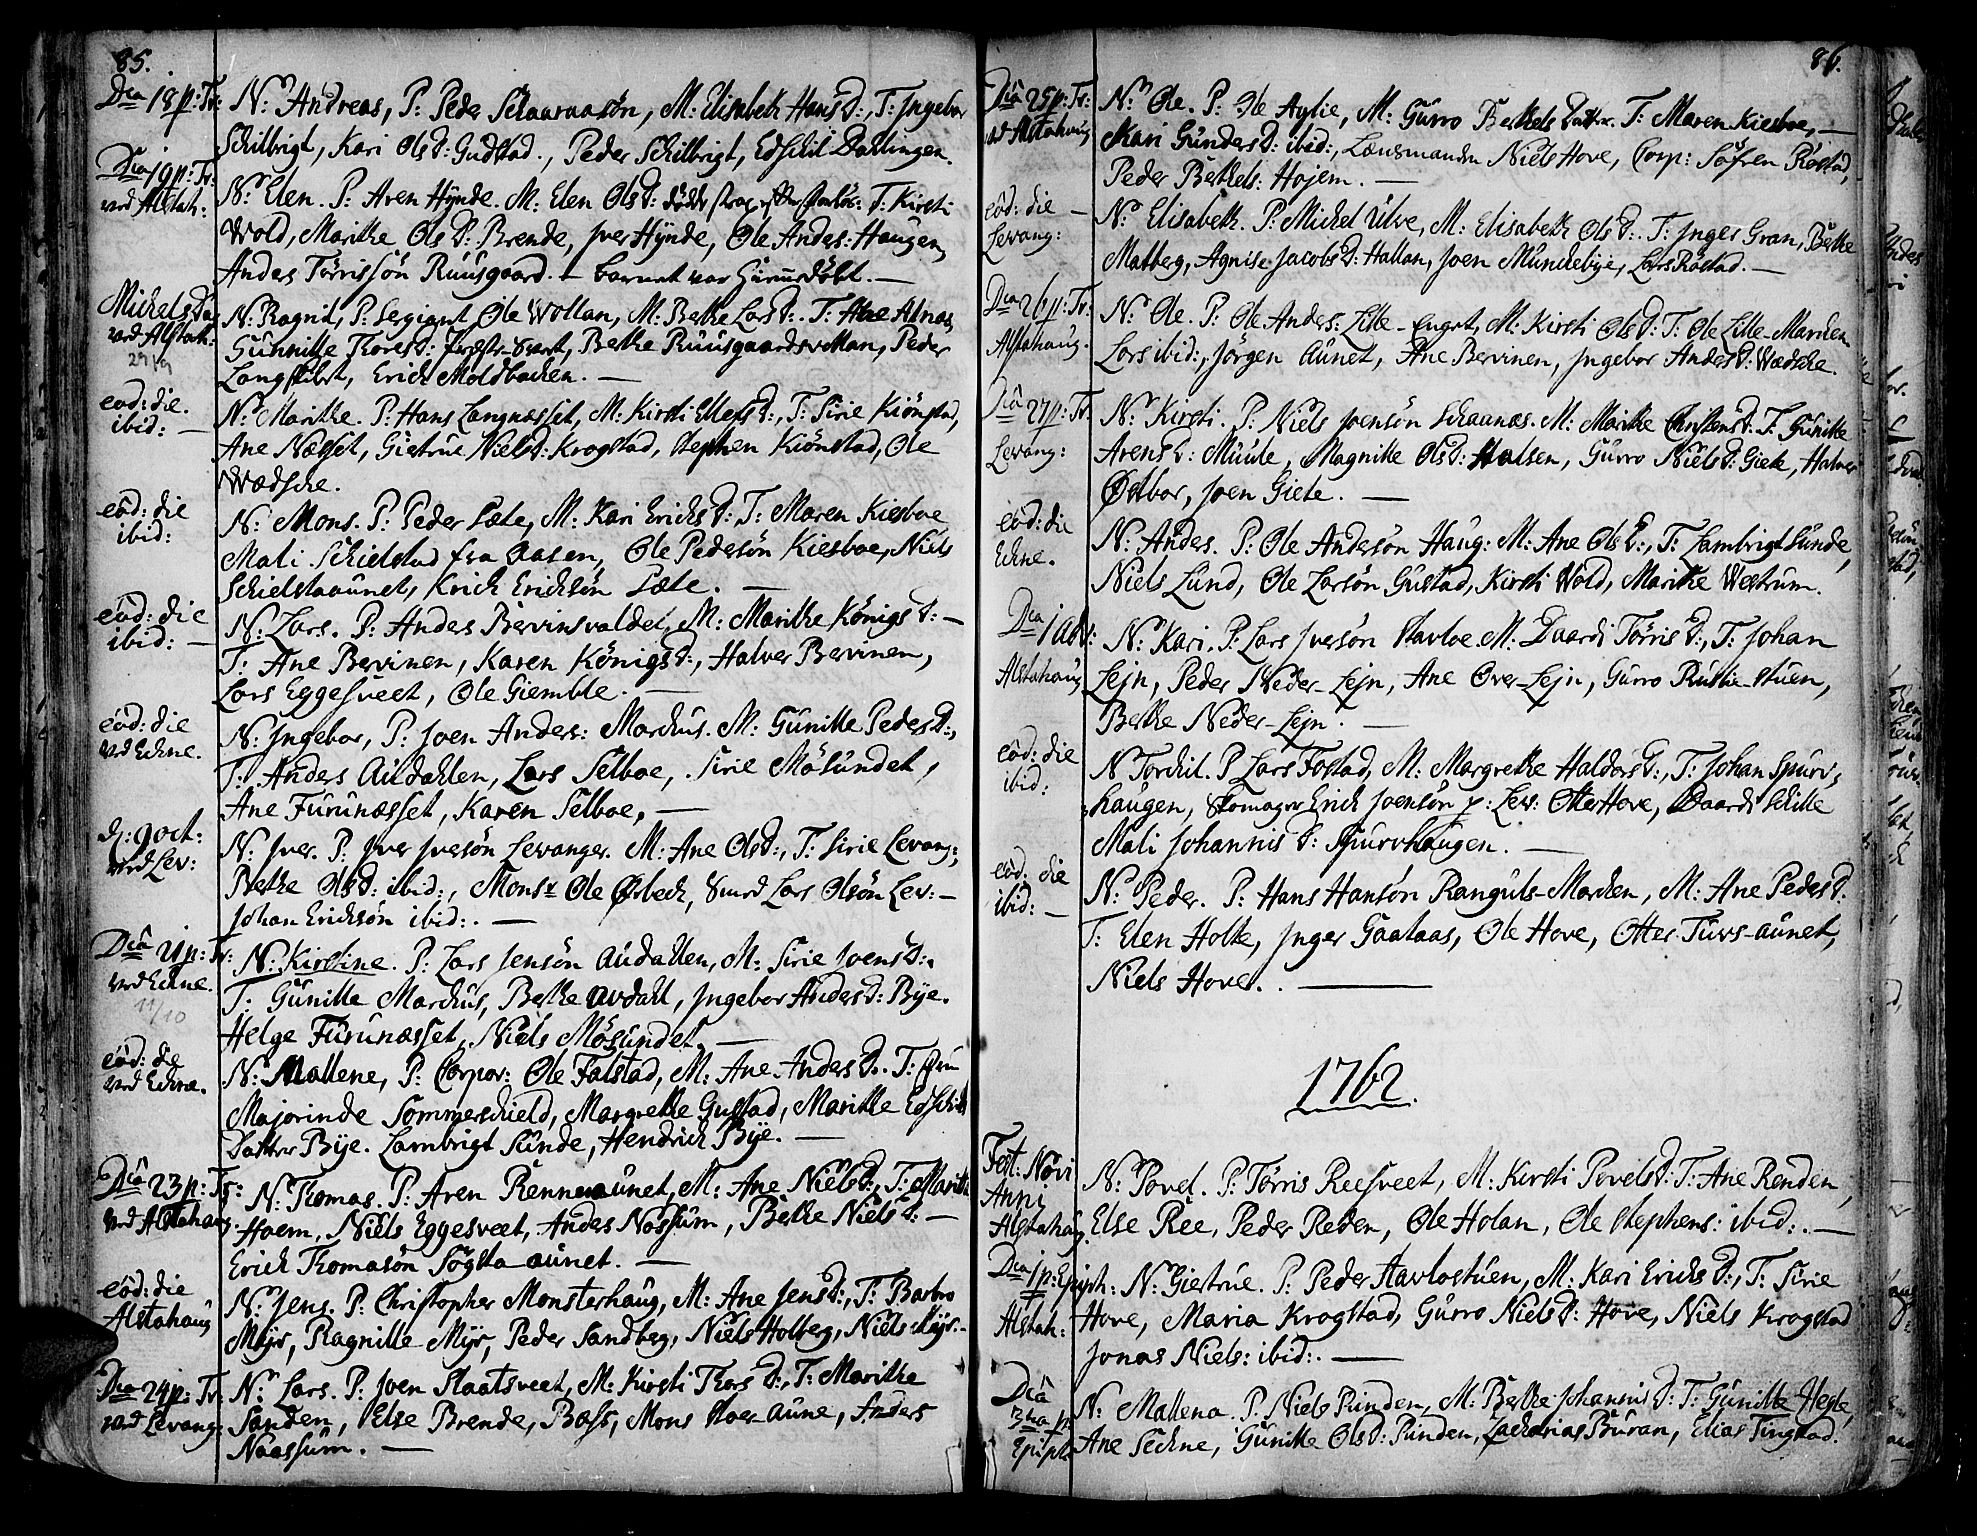 85.
Dca 18 p: Tr: N: Andreas, P: Peder Schaaraasön, M: Elisabeth Hans D:, T: Ingebor
Schilbrigt, Kari Ols D: Gudstad., Peder Schilbrigt, Edschil Dahlingen.
Dca 19 p: Tr:
ved Alstah: N: Elen. P: Aren Hynde. M: Elen Ols D: T: Kirsti
Wold, Marithe Ols D: Brende, Iver Hÿnde, Ole Anders: Haugen,
Anders Törrissön Ruusgaard. — barnet var hiemmedöbt. —
Michels Da
ved Alstah:
29/9
N: Ragnil, P: Sergiant Ole Wollan, M: Berthe Lars D:. T: Ane Alnæs,
Gunnille Thores D:, Berthe Ruusgaardsvollan, Peder
Langstibet, Erich Moldbachen. —
eod: die.
ibid: —
N: Marithe. P: Hans Langnæsset, M: Kirsti Ellefs D:, T: Sirie Kiönstad,
Ane Næsset, Giertrue Niels D: Krogstad, Stephen Kiönstad, Ole
Wædsche.
eod: die
ibid:
N: Mons. P: Peder Sæte, M: Kari Erichs D: T: Maren Kiesboe
Mali Schielstad fra Aasen, Ole Pedersön Kiesboe, Niels
Schielstaunet, Erich Erichsön Sæte. —
eod: die
ibid: —
N: Lars. P: Anders Bervinsvaldet, M: Marithe Königs D: —
T: Ane Bervinen, Karen Königs D:, Halver Bervinen,
Lars Eggesveet, Ole Giemble. —
eod: die
ved Echne.
N: Ingebor, P: Joen Anders: Marchus. M: Gunille Peders D:,
T: Anders Auidahlen, Lars Selboe, Sirie Mösundet,
Ane Furunæsset, Karen Selboe, —
d: 9 oct:
ved Lev:
N: Iver. P: Iver Ivesön Levanger. M: Ane Ols D:, T: Sirie Levang:,
Berthe Ols D: ibid:, Monsr Ole Örbech, Smed Lars Olsön Lev: —
Johan Erichsön ibid:. —
Dca 21 p: Tr:
ved Echne.
11/10
N: Kirstine. P: Lars Jensön Audahlen, M: Sirie Joens D:,
T: Gunille Marchus, Berthe Avdahl, Ingebor Anders D: Bye.
Helge Furunæsset, Niels Mösundet. —
eod: die
ved Echne.
N: Mallene, P: Corpor: Ole Falstad, M: Ane Anders D:. T: Fru
Majorinde Sommerschield, Margrethe Gustad, Marithe Edschils
Datter Bye. Lambrigt Sunde, Hendrich Bÿe. —
Dca 23 p: Tr:
ved Alstahaug.
N: Thomas. P: Aren Rennesaunet, M: Ane Niels D:, T: Marith
Hoem, Niels Eggesveet, Anders Nossum, Berthe Niels D: —
Erich Thomasön Sögsta-aunet. —
eod: die
Alstahaug
N: Jens. P: Christopher Monsterhaug, M: Ane Jens D:, T: Barbro
Myr, Ragnille Myr, Peder Sandberg, Niels Holberg, Niels Myr. —
Dca 24 p: Tr:
ved Levang:
N: Lars. P: Joen Slaatsveet, M: Kirsti Thors D:, T: Marithe
Sanden, Else Brende, Mons Stoer-aune, Anders
Naassum. —
86.
Dca 25 p: Tr:
ved Alstahaug
N: Ole. P: Ole Aglie, M: Gurro Berthels Datter. T: Maren Kiesboe, —
Kari Gunders D: ibid:, Lænsmanden Niels Hove, Corp: Söfren Röstad,
Peder Berthels: Hojem. —
eod: die —
Levang:
N: Elisabeth. P: Michel Ulve, M: Elisabeth Ols D:. T: Inger Gran, Berthe
Matberg, Agnise Jacobs D: Hallan, Joen Munchebye, Lars Röstad. —
Dca 26 p: Tr:
Alstahaug.
N: Ole. P: Ole Anders: Lille-Enget, M: Kirsti Ols D: T: Ole Lille-Marchen
Lars ibid:, Jörgen Aunet, Ane Bervinen, Ingebor Anders D: Wædsche.
Dca 27 p: Tr.
Levang:
N: Kirsti. P: Niels Joensön Schaanæs. M: Marithe Christens D: T: Gunille
Arens D: Muule, Magnille Ols D: Stalsen, Gurro Niels D: Giete, Halver
Östbor, Joen Giete. —
eod: die
Echne.
N: Anders. P: Ole Andersön Haug: M: Ane Ols D:, T: Lambrigt Sunde,
Niels Lund, Ole Larsön Gustad, Kirsti Wold, Marithe Westrum.
Dca 1 Adv:
Alstahaug
N: Kari. P: Lars Iversön Stavloe. M: Baardi Törris D:, T: Johan
Lejn, Peder Neder-Lejn, Ane Over-Lejn, Gurro Rustie-stuen,
Berthe Neder-Lejn. —
eod: die
ibid:
N: Torchil. P: Lars Fostad, M: Margrethe Haldors D:, T: Johan Spurv-
haugen, Skomager Erich Joensön p: Lev: Otter Hove, Baardi Schille
Mali Johannis D: Spurvhaugen. —
eod: die
ibid: —
N: Peder. P: Hans Hansön Ranguls-Marchen, M: Ane Peders D:
T: Elen Holthe, Inger Gaalaas, Ole Hove, Otter Turs-aunet,
Niels Hove. —
1762.
Fest: Novi
Anni
Alstahaug.
N: Povel. P: Törris Reesveet, M: Kirsti Povels D: T: Ane Renden,
Else Ree, Peder Reden, Ole Holan, Ole Stephens: ibid:. —
Dca 1 p: Epiph:
Alstah:
N: Giertrue. P: Peder Stavlostuen, M: Kari Erichs D:, T: Sirie
Hove, Maria Krogstad, Gurro Niels D: Hove, Niels Krogstad
Jonas Niels: ibid:. —
Dca
3tia p:
Epiph:
N: Mallena. P: Niels Rinden, M: Berthe Johannis D: T: Gunille Hegle,
Ane Sechne, Gunille Ols D: Rinden, Zacharias Buran, Elias Tingstad.